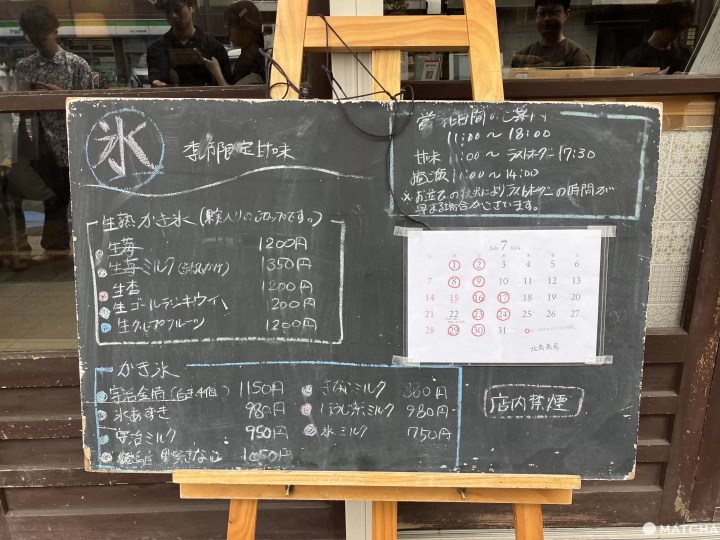 氷
季節限定甘味
生蜜かき氷（果実入りのシロップです。）
生苺 1200円
生苺ミルク 1350円
生杏 1200円
生ゴールデンキウイ 1200円
生グレープフルーツ 1200円
かき氷
宇治金時（白玉4個） 1150円
氷あずき 980円
宇治ミルク 950円
黒蜜きなこ 1050円
きなこミルク 880円
ほうじ茶ミルク 980円
氷ミルク 750円
営業時間のご案内
11:00～18:00
甘味 11:00～ラストオーダー17:30
11:00～14:00
※お並びの状況によりラストオーダーの時間が
早まる場合がございます。
July 7 2024
1 2 3 4 5 6
7 8 9 10 11 12 13
14 15 16 17 18 19 20
21 22 23 24 25 26 27
28 29 30 31
店内禁煙
MATCHA